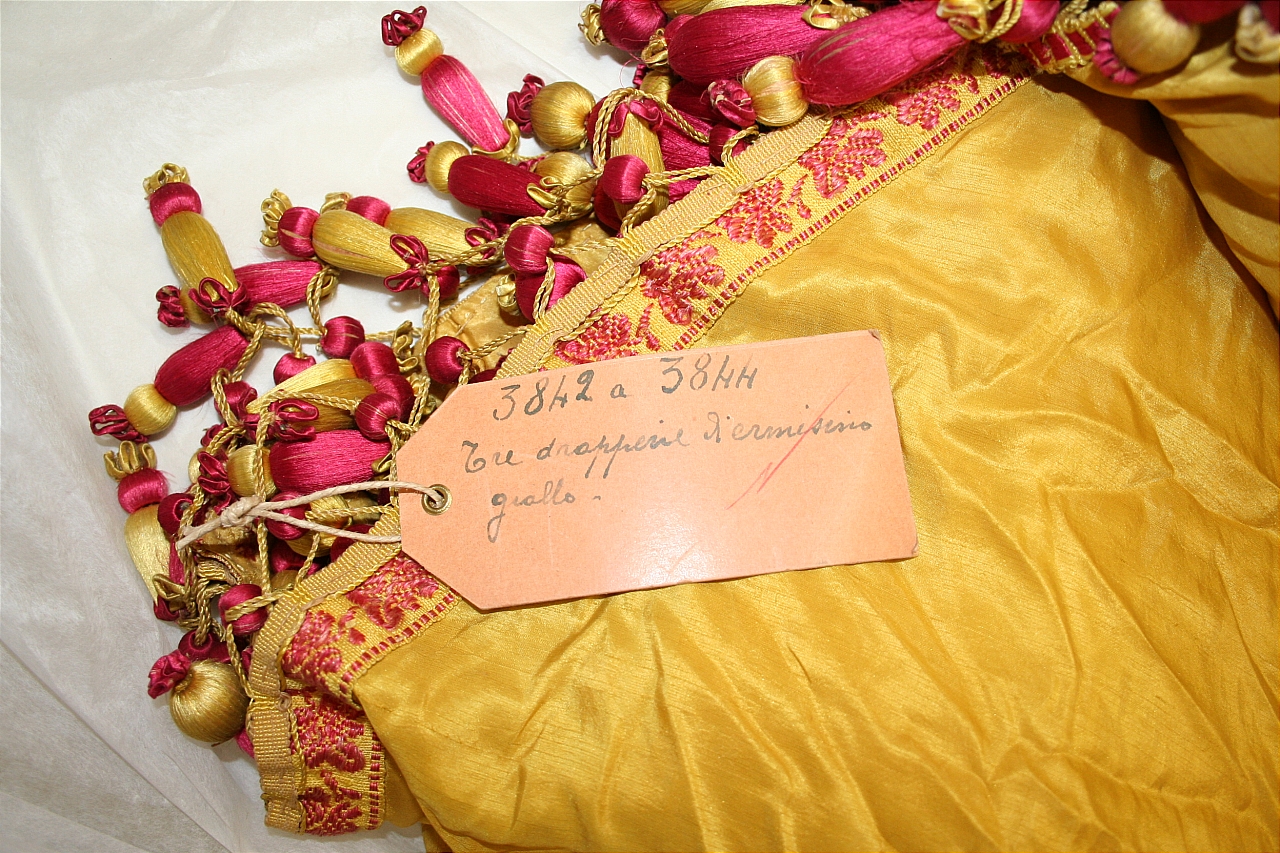 3842 a 3844
Tre drapperie d'ermisino
giallo.